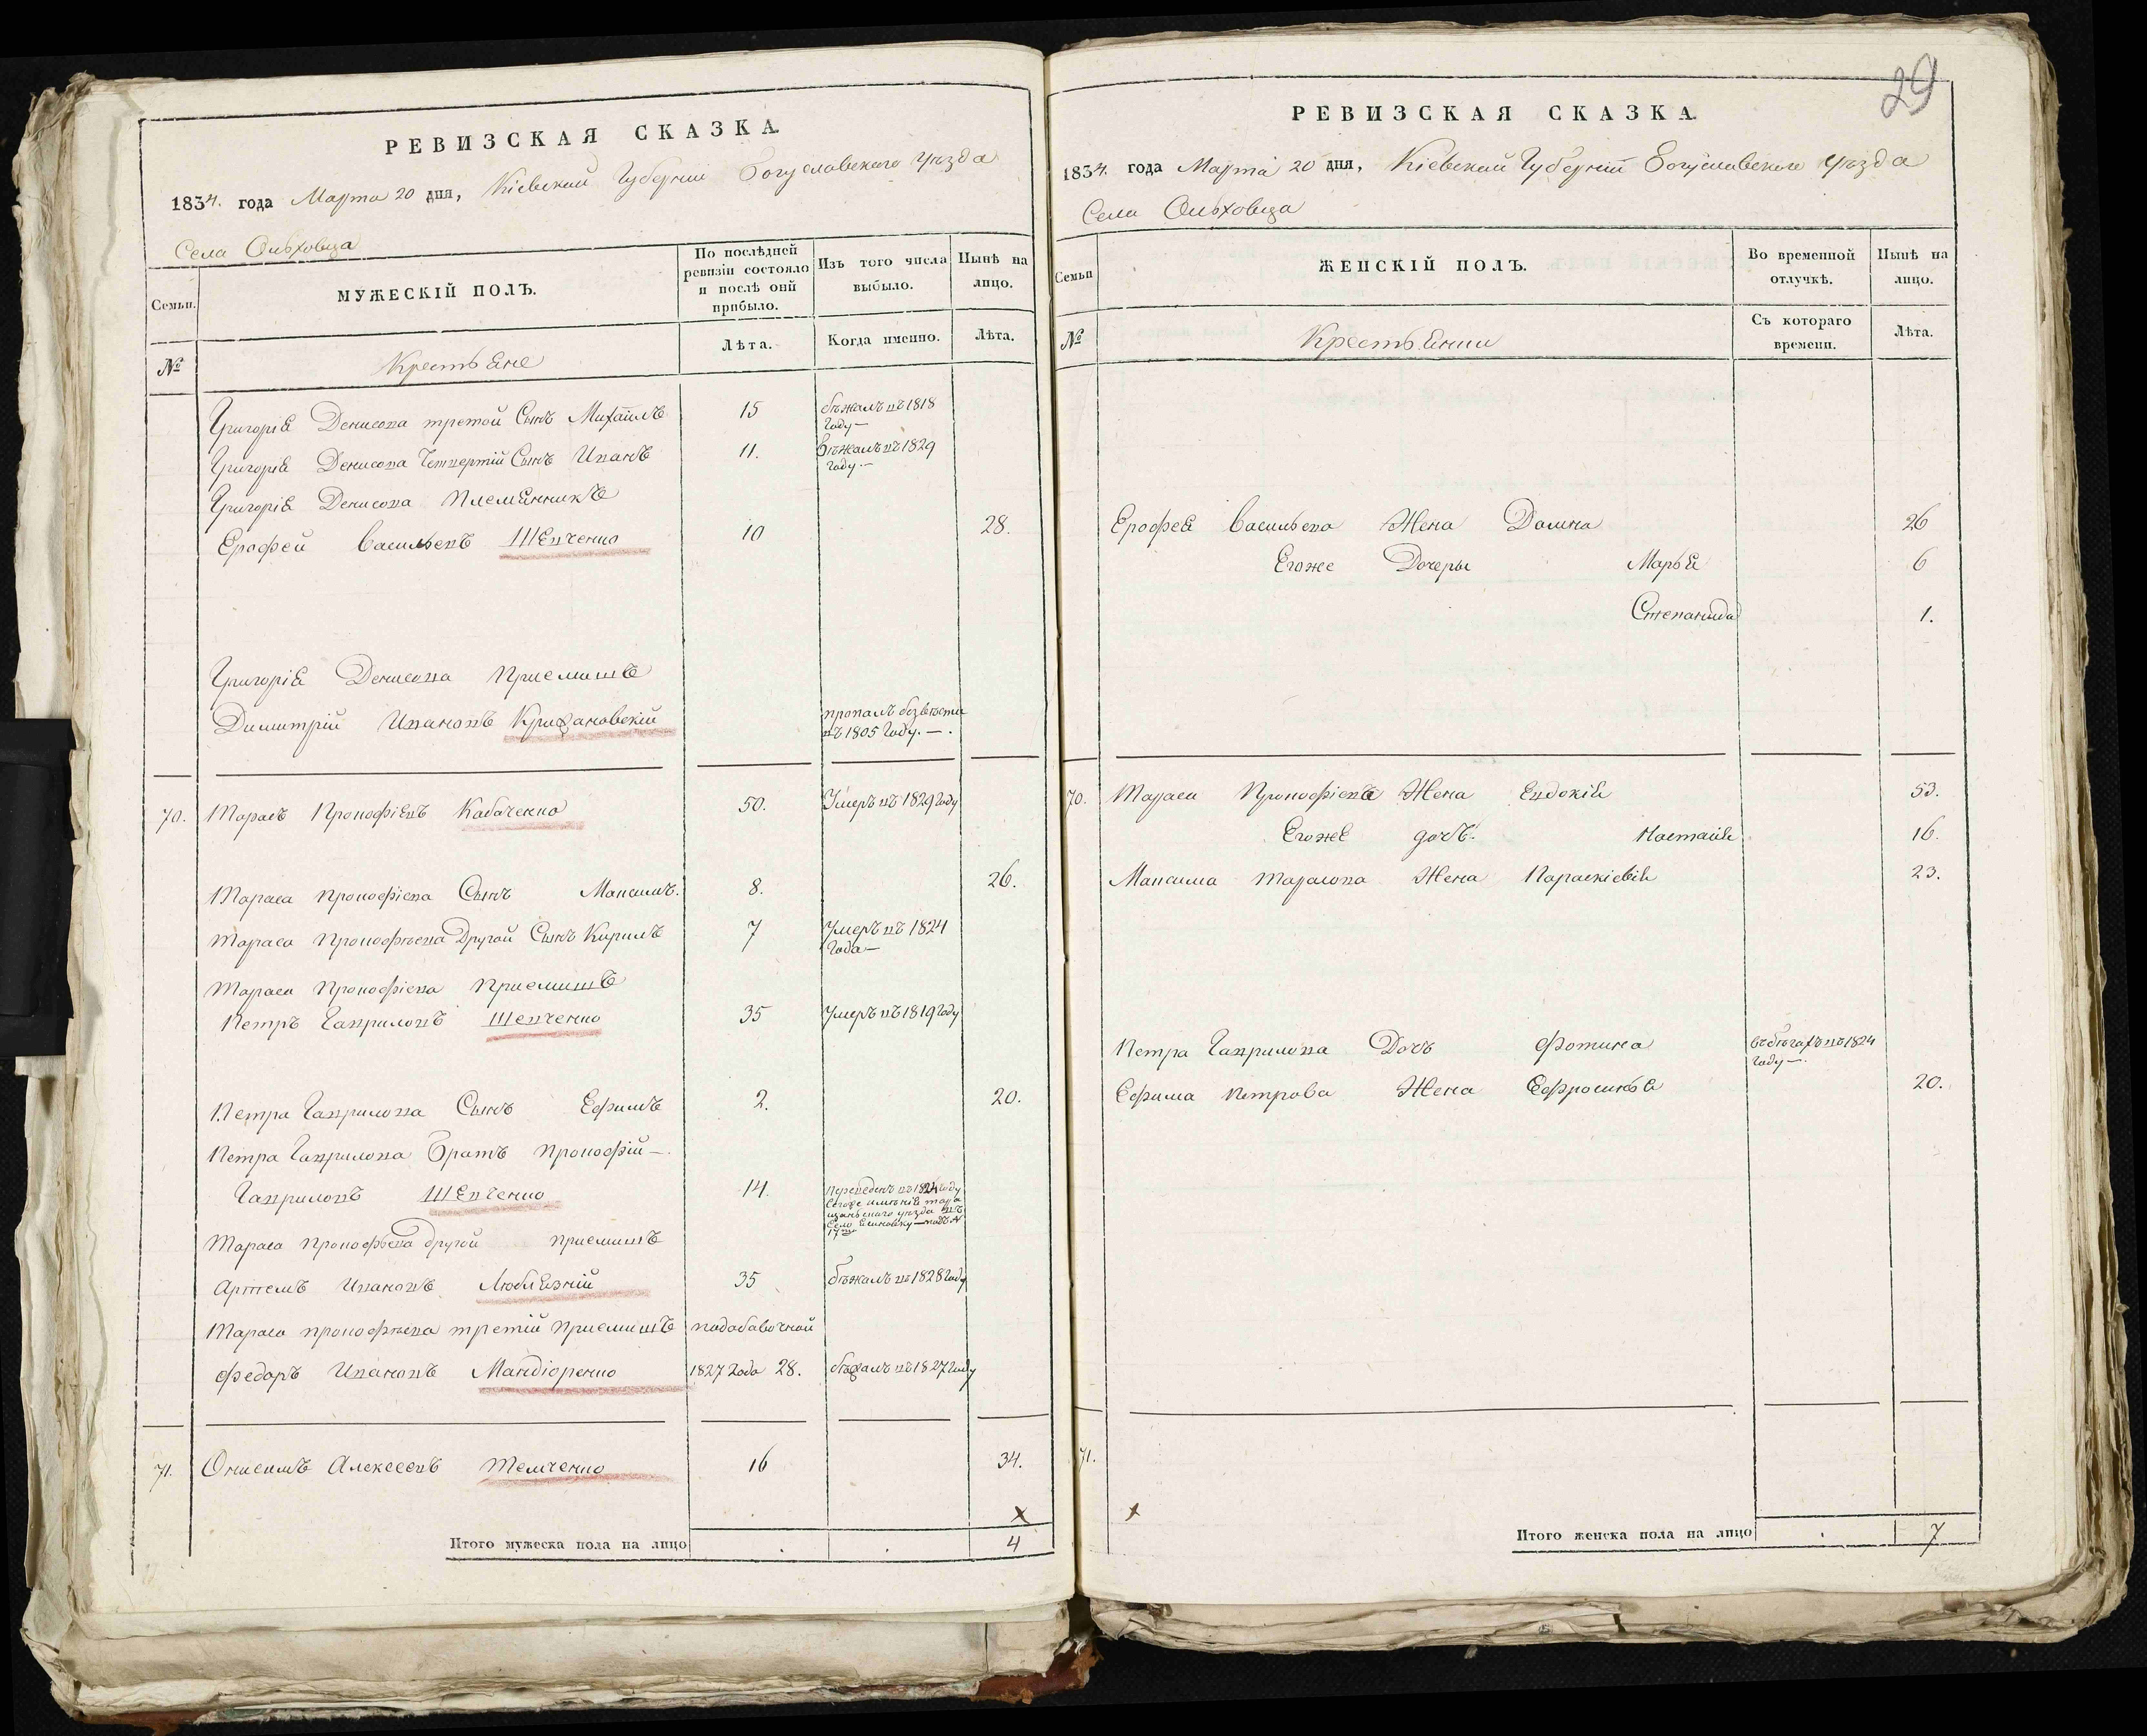 РЕВИЗСКАЯ СКАЗКА.
1834. года Марта 20 дня, Кіевской Губерніи Богуславского Уѣзда
Села Ольховца
Семьи.
МУЖЕСКІЙ ПОЛЪ.
По послѣдней ревизіи состояло и послѣ оній прибыло.
Изъ того числа выбыло.
Нынѣ на лицо.
№
Крестьяне
Лѣта.
Когда именно.
Лѣта.
Григорія Денисова третой Сынъ Михаилъ 15 бѣжалъ въ 1818 Году —
Григорія Денисова Четвертій Сынъ Иванъ 11. бѣжалъ въ 1829 Году. —
Григорія Денисова Племянникъ
Ерофей Васильевъ Шевченко 10 28.
Григорія Денисова Приемишъ
Димитрій Ивановъ Крижановскій пропалъ безвѣсти въ 1805 Году. — .
70. Тарасъ Прокофіевъ Кабаченко 50. Умеръ въ 1829 Году
Тараса Прокофіева Сынъ Максимъ. 8. 26.
Тараса Прокофьева Другой Сынъ Кирилъ 7 Умеръ въ 1824 Года —
Тараса Прокофіева Приемишъ
Петръ Гавриловъ Шевченко 35 Умеръ въ 1819 Году
Петра Гаврилова Сынъ Ефимъ 2. 20.
Петра Гаврилова Братъ Прокофій — .
Гавриловъ Шевченко 14. Переведенъ въ 1824 Году Тогоже имѣнія Тара щанского уѣзда въ Село подъ № 17м
Тараса Прокофьева другой Приемишъ
Артемъ Ивановъ Любязній 35 бѣжалъ въ 1828 Году
Тараса Прокофьева третій Приемишъ подобавочной
Федоръ Ивановъ Мандіоренко 1827 Года 28. бѣжалъ въ 1827 Году
71. Онисимъ Алексеевъ Темченко 16 34.
Итого мужеска пола на лицо 4
29
РЕВИЗСКАЯ СКАЗКА.
1834. года Марта 20 дня, Кіевской Губерніи Богуславского Уѣзда
Села Ольховца
Семьи
ЖЕНСКІЙ ПОЛЪ.
Во временной отлучкѣ.
Нынѣ на лицо.
№
Крестьянки
Съ котораго времени.
Лѣта.
Ерофея Васильева Жена Домна 26
Егоже Дочеры Марья 6
Степанида 1.
70. Тараса Прокофіева Жена Евдокія 53.
Егоже дочъ. Настасія 16.
Максима Тарасова Жена Параскіевія 23.
Петра Гаврилова Дочъ Фотина въ бѣгахъ въ 1824 Году — .
Ефима Петрова Жена Ефросинья 20.
71.
Итого женска пола на лицо 7